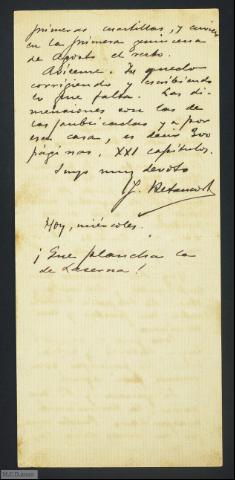 primeras cuartillas, y envien
en la primera quincena
de Agosto el resto.
Avíseme. Yo quedo
corrigiendo y escribiendo
lo que falta. Las di-
mensiones son las de
las publicadas ya por
esa casa, es decir 300
páginas, XXI capítulos.
Suyo muy devoto
J. Betancort
Hoy, miércoles.
¡Que plancha la
de Laserna!